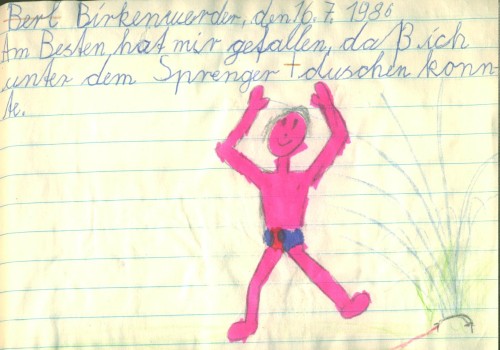 Berl Birkenwerder, den 16.7.1986
Am Besten hat mir gefallen, da ß ich
unter dem Sprenger duschen konn-
te.